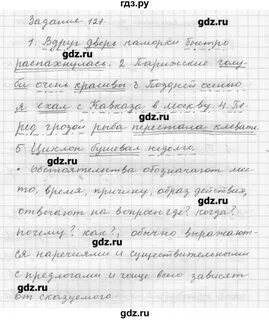 Задание 121
1. Вдруг дверь каморки быстро
распахнулась. 2 Парижские голу-
би очень красивы 3 Поздней осенью
я ехал с Кавказа в Москву. 4. Пе-
ред грозой рыба перестала клевать.
5 Циклон бушевал недолго.
• Обстоятельства обозначают мес-
то, время, причину, образ действия,
отвечают на вопросы где? когда?
почему? как?, обычно выражают-
ся наречиями и существительными
с предлогами и чаще всего зависят
от сказуемого.
gdz.ru gdz.ru
gdz.ru gdz.ru
gdz.ru gdz.ru
gdz.ru gdz.ru
gdz.ru gdz.ru